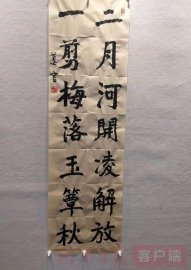 二月河開凌解放
一剪梅落玉簟秋
客户端